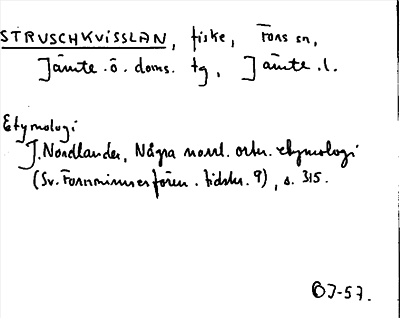 STRUSCHKVISSLAN, fiske, Fors sn,
Jämte. ö. doms. tg, Jämte. l.
Etymologi
J. Nordlander, Några norrl. ortn. etymologi
(Sv. Fornminnesfören. tidskr. 9), s. 315.
BJ-57.